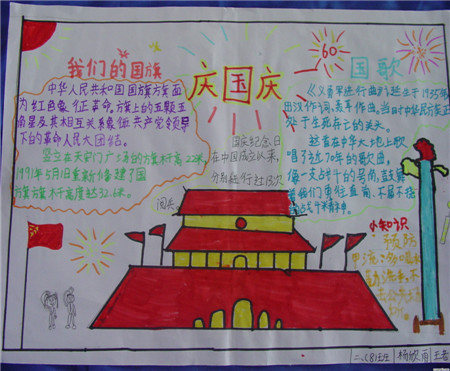 我们的国旗
中华人民共和国国旗旗面
为红色象征革命。旗上的五颗五
角星及其相互关系象征共产党领导
下的革命人民大团结。
竖立在天安门广场的旗杆高22米
1991年5月1日重新修建了国
旗旗杆高度达32.6米。
庆国庆
国庆纪念日
在中国成立以来,
60
国歌
《义勇军进行曲》诞生于1935年
田汉作词、聂耳作曲。当时中华民族正
处于生死存亡的关头。
在中华大地上歌
唱了近70年的歌曲。
像一支战斗的号角,鼓舞
着我们勇往直前、不屈不挠
小知识
预防
二、(8)班
杨欣雨